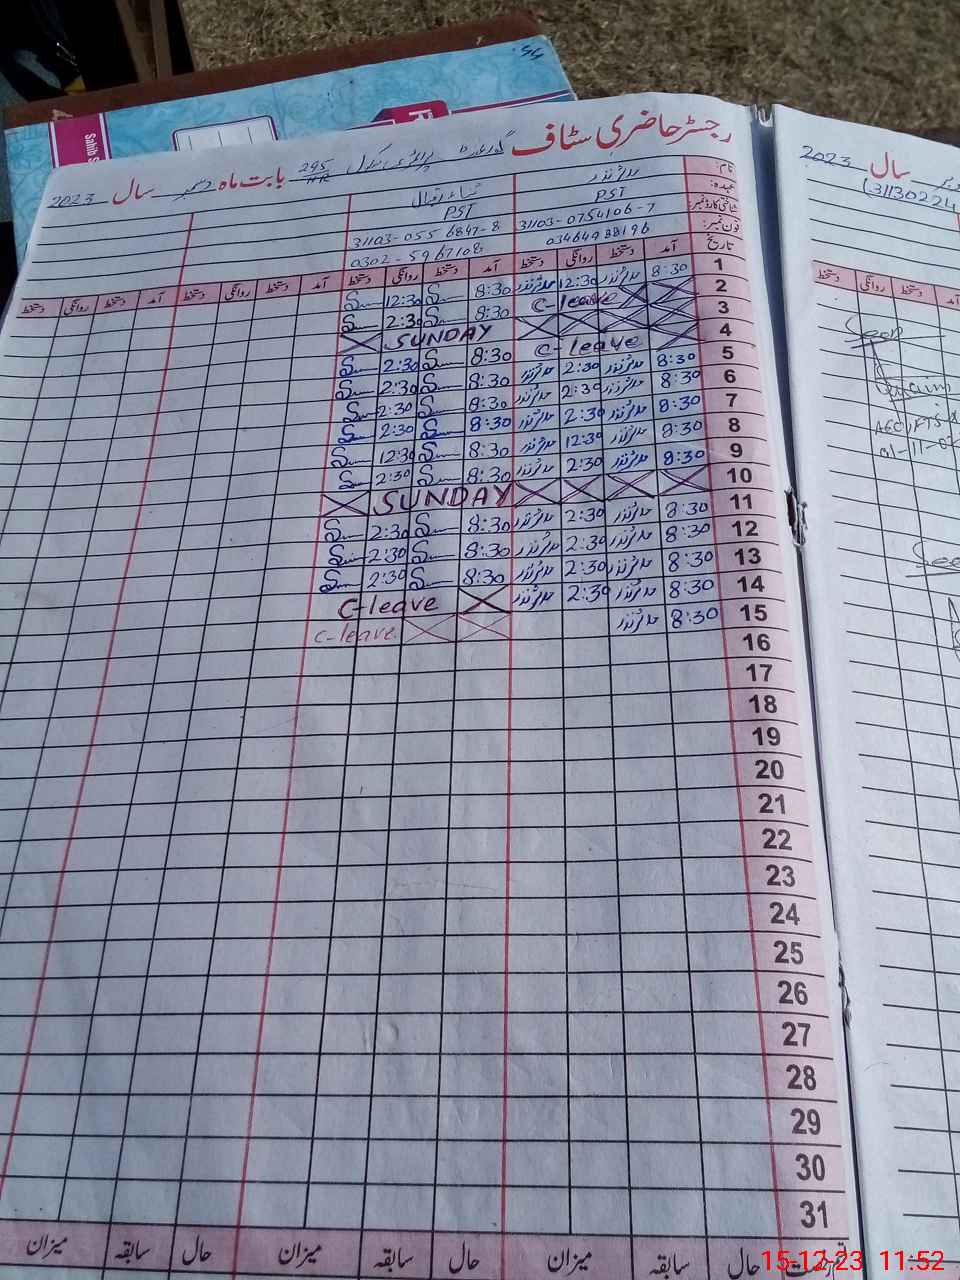 Sahib S
رجسٹر حاضری سٹاف گورنمنٹ پرائمری سکول 295/HR بابت ماہ دسمبر سال 2023
نام:
عہدہ: PST PST
شناختی کارڈ نمبر: 31103-0754106-7 31103-0556847-8
فون نمبر: 03464988196 0302-5967108
تاریخ آمد دستخط روانگی دستخط آمد دستخط روانگی دستخط آمد دستخط روانگی دستخط آمد دستخط روانگی دستخط
1 8:30 12:30 8:30 12:30
2 C-leave 8:30 2:30
3 SUNDAY
4 C-leave 8:30 2:30
5 8:30 2:30 8:30 2:30
6 8:30 2:30 8:30 2:30
7 8:30 2:30 8:30 2:30
8 8:30 12:30 8:30 12:30
9 8:30 2:30 8:30 2:30
10 SUNDAY
11 8:30 2:30 8:30 2:30
12 8:30 2:30 8:30 2:30
13 8:30 2:30 8:30 2:30
14 8:30 2:30 C-leave
15 8:30 C-leave
16
17
18
19
20
21
22
23
24
25
26
27
28
29
30
31
حال سابقہ میزان حال سابقہ میزان حال سابقہ میزان
سال 2023
(31130224
آمد دستخط روانگی دستخط
Seen
15-12-23 11:52